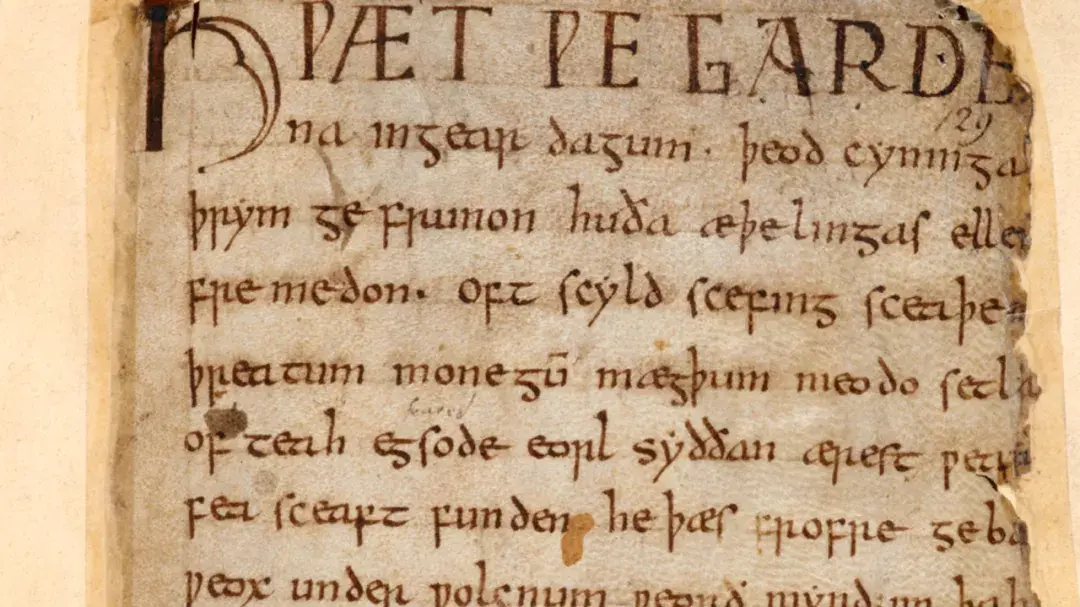 HǷÆT ǷE GARDE
na ingear dagum. þeod cyninga
þrym ge frunon huða æþelingas elle
fremedon. oft scyld scefing sceaþe
þreatum monegū mægþum meodo setla
of teah egsode eorl syððan ærest ƿear
fea sceaft funden he þæs frofre geba
ƿeox under ƿolcnum ƿeorð mynd
129